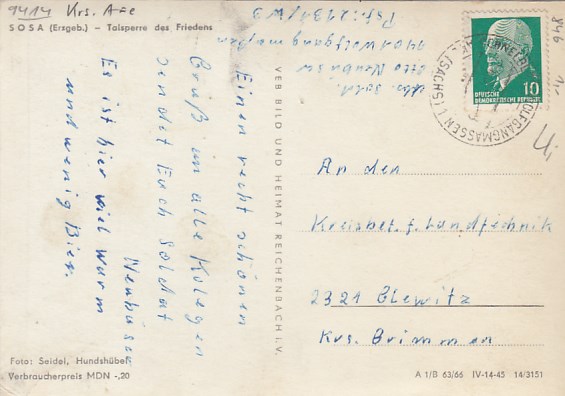 9414 Krs. Aue
SOSA (Ersgeb.) – Talsperre des Friedens
Einen recht schönen
Gruß an alle Kolegen
sendet Euch Soldat
Neubüser
Es ist hier viel warm
und wenig Bier.
Foto: Seidel, Hundshübel
Verbraucherpreis MDN -,20
VEB BILD UND HEIMAT REICHENBACH i. V.
Abs. Sold.
Otto Neubüser
9401 Wolfgangmaßen
DEUTSCHE
DEMOKRATISCHE REPUBLIK
10
WOLFGANGMASSEN
(SACHS)
846
An den
Kreisbet. f. Landtechnik
2321 Glewitz
Krs. Grimmen
A 1/B 63/66 IV-14-45 14/3151